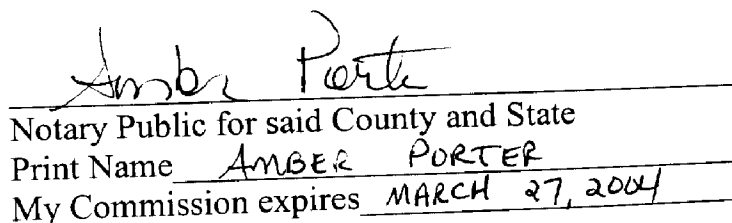 Amber Porter
Notary Public for said County and State
Print Name AMBER PORTER
My Commission expires MARCH 27, 2004